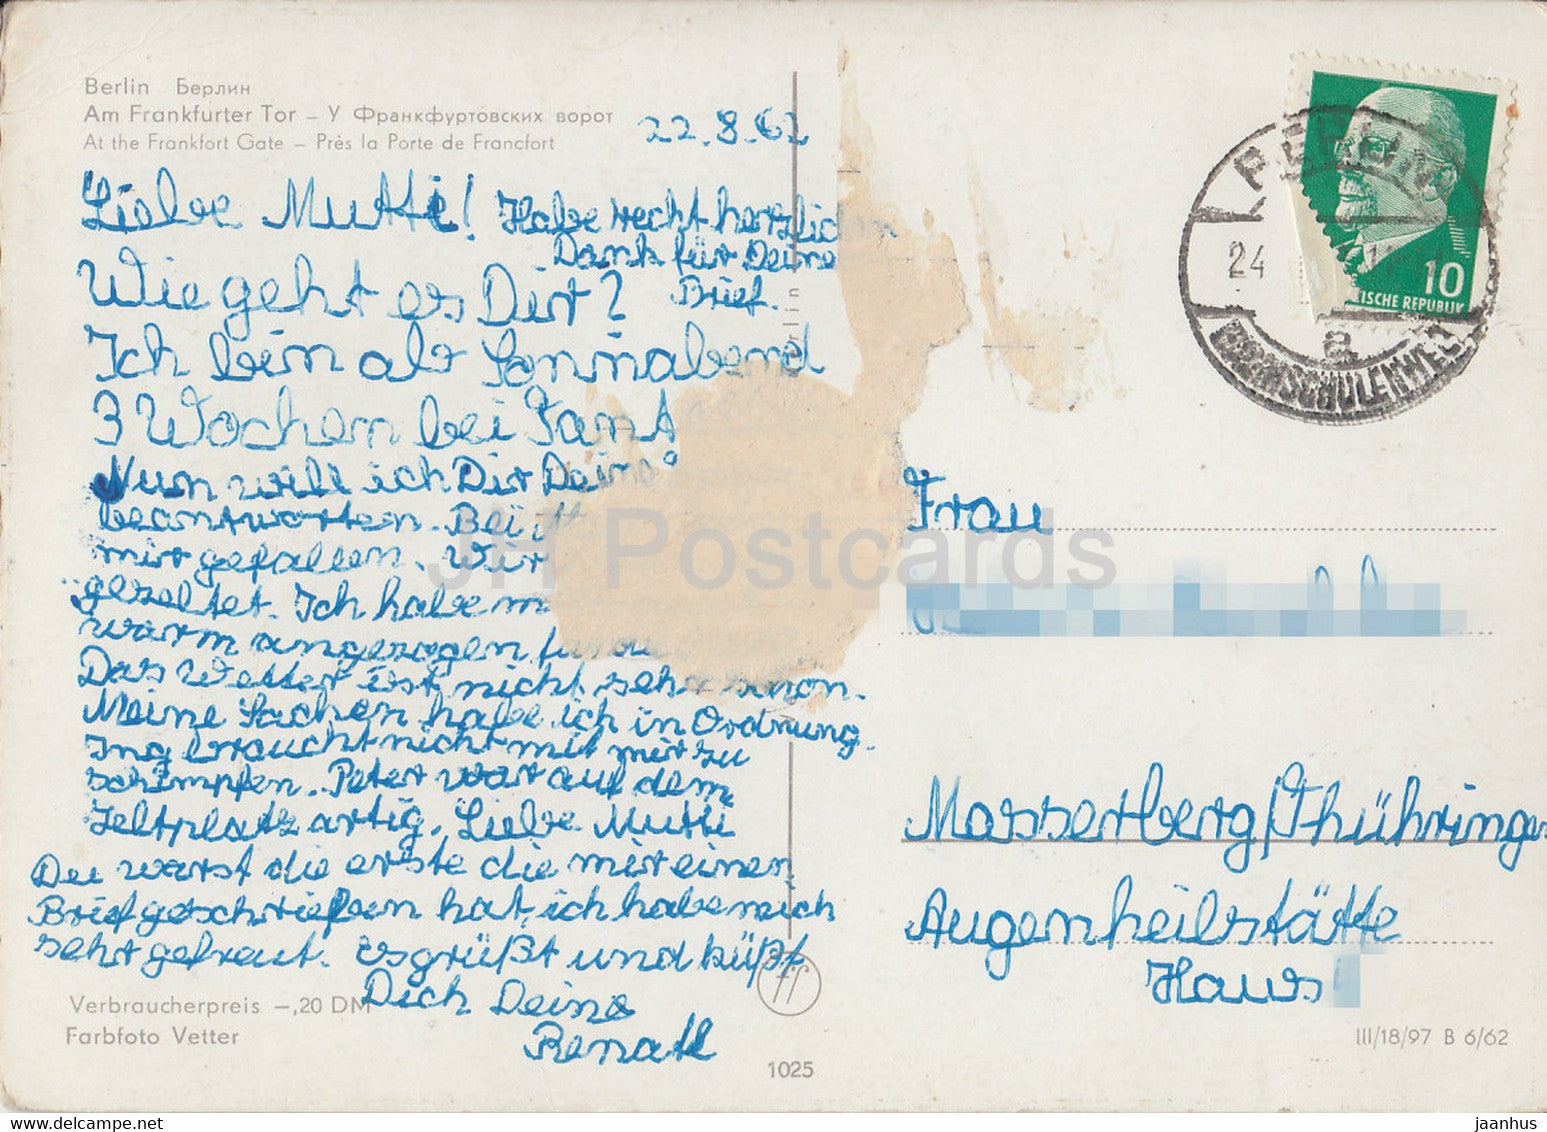 Berlin Берлин
Am Frankfurter Tor – У Франкфуртовских ворот
At the Frankfort Gate – Près la Porte de Francfort
22.8.62
Liebe Mutti! Habe recht herzlichen
Dank für Deine
Brief.
Wie geht es Dir?
Ich bin ab Sonnabend
3 Wochen bei Tant
Nun will ich Dir Deine
beantworten. Bei
mir gefallen. Wir
gezeltet. Ich habe m
warm angezogen für
Das Wetter ist nicht sehr schön.
Meine Sachen habe ich in Ordnung.
Ing braucht nicht mit mir zu
schimpfen. Peter war auf dem
Zeltplatz artig. Liebe Mutti
Du warst die erste die mir einen
Brief geschrieben hat, ich habe mich
sehr gefreut. Es grüßt und küßt
Dich Deine
Renate
Verbraucherpreis –,20 DM
Farbfoto Vetter
1025
Berlin
10
TISCHE REPUBLIK
BERLIN
24
a
BAUMSCHULENWEG
Frau
Masserberg/Thühringen
Augenheilstätte
Haus
III/18/97 B 6/62
JH Postcards
jaanhus